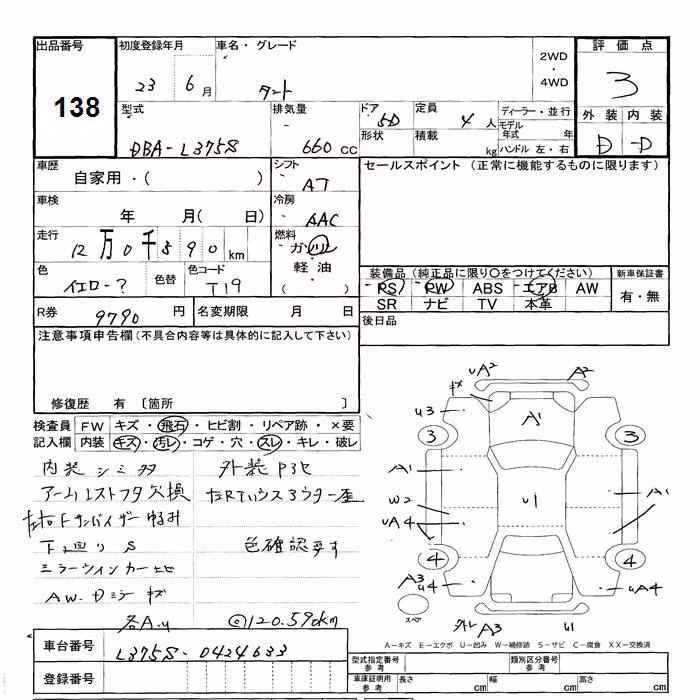 出品番号 初度登録年月 車名・グレード 2WD・4WD 評価点
138 23 6月 タント 3
型式 排気量 ドア 定員 ディーラー・並行 外装 内装
DBA-L375S 660cc 5D 4人 モデル年式 年 D -D
形状 積載 kg ハンドル 左・右
車歴 シフト セールスポイント (正常に機能するものに限ります)
自家用・( ) AT
車検 冷房
年 月( 日) AAC
走行 燃料
12万0千590km ガソリン
色 色替 色コード 軽油
イエロー? T19 ( )
装備品(純正品に限り○をつけてください) 新車保証書
PS PW ABS エアB AW 有・無
SR ナビ TV 本革
R券 9790円 名変期限 月 日 後日品
注意事項申告欄(不具合内容等は具体的に記入して下さい)
修復歴 有 〔箇所 〕
検査員 FW キズ・飛石・ヒビ割・リペア跡・×要
記入欄 内装 キズ・汚レ・コゲ・穴・スレ・キレ・破レ
内装シミ多 外装
アームレストフタ欠損
左右Fサンバイザーゆるみ
下廻りS 色確認要す
ミラーウインカーヒビ
AW.Dミラーキズ
各A.U @120.590km
車台番号 L375S-0424633
登録番号
UA2 A2
キズ
U3 A1
3 3
A1 A1
W2 U1
UA4
4 4
A3 U4 UA4
スペア 外し A3 U1
A-キズ E-エクボ U-凹み W-補修跡 S-サビ C-腐食 XX-交換済
型式指定番号 参考 類別区分番号 参考
車庫証明用 参考 長さ cm 幅 cm 高さ cm